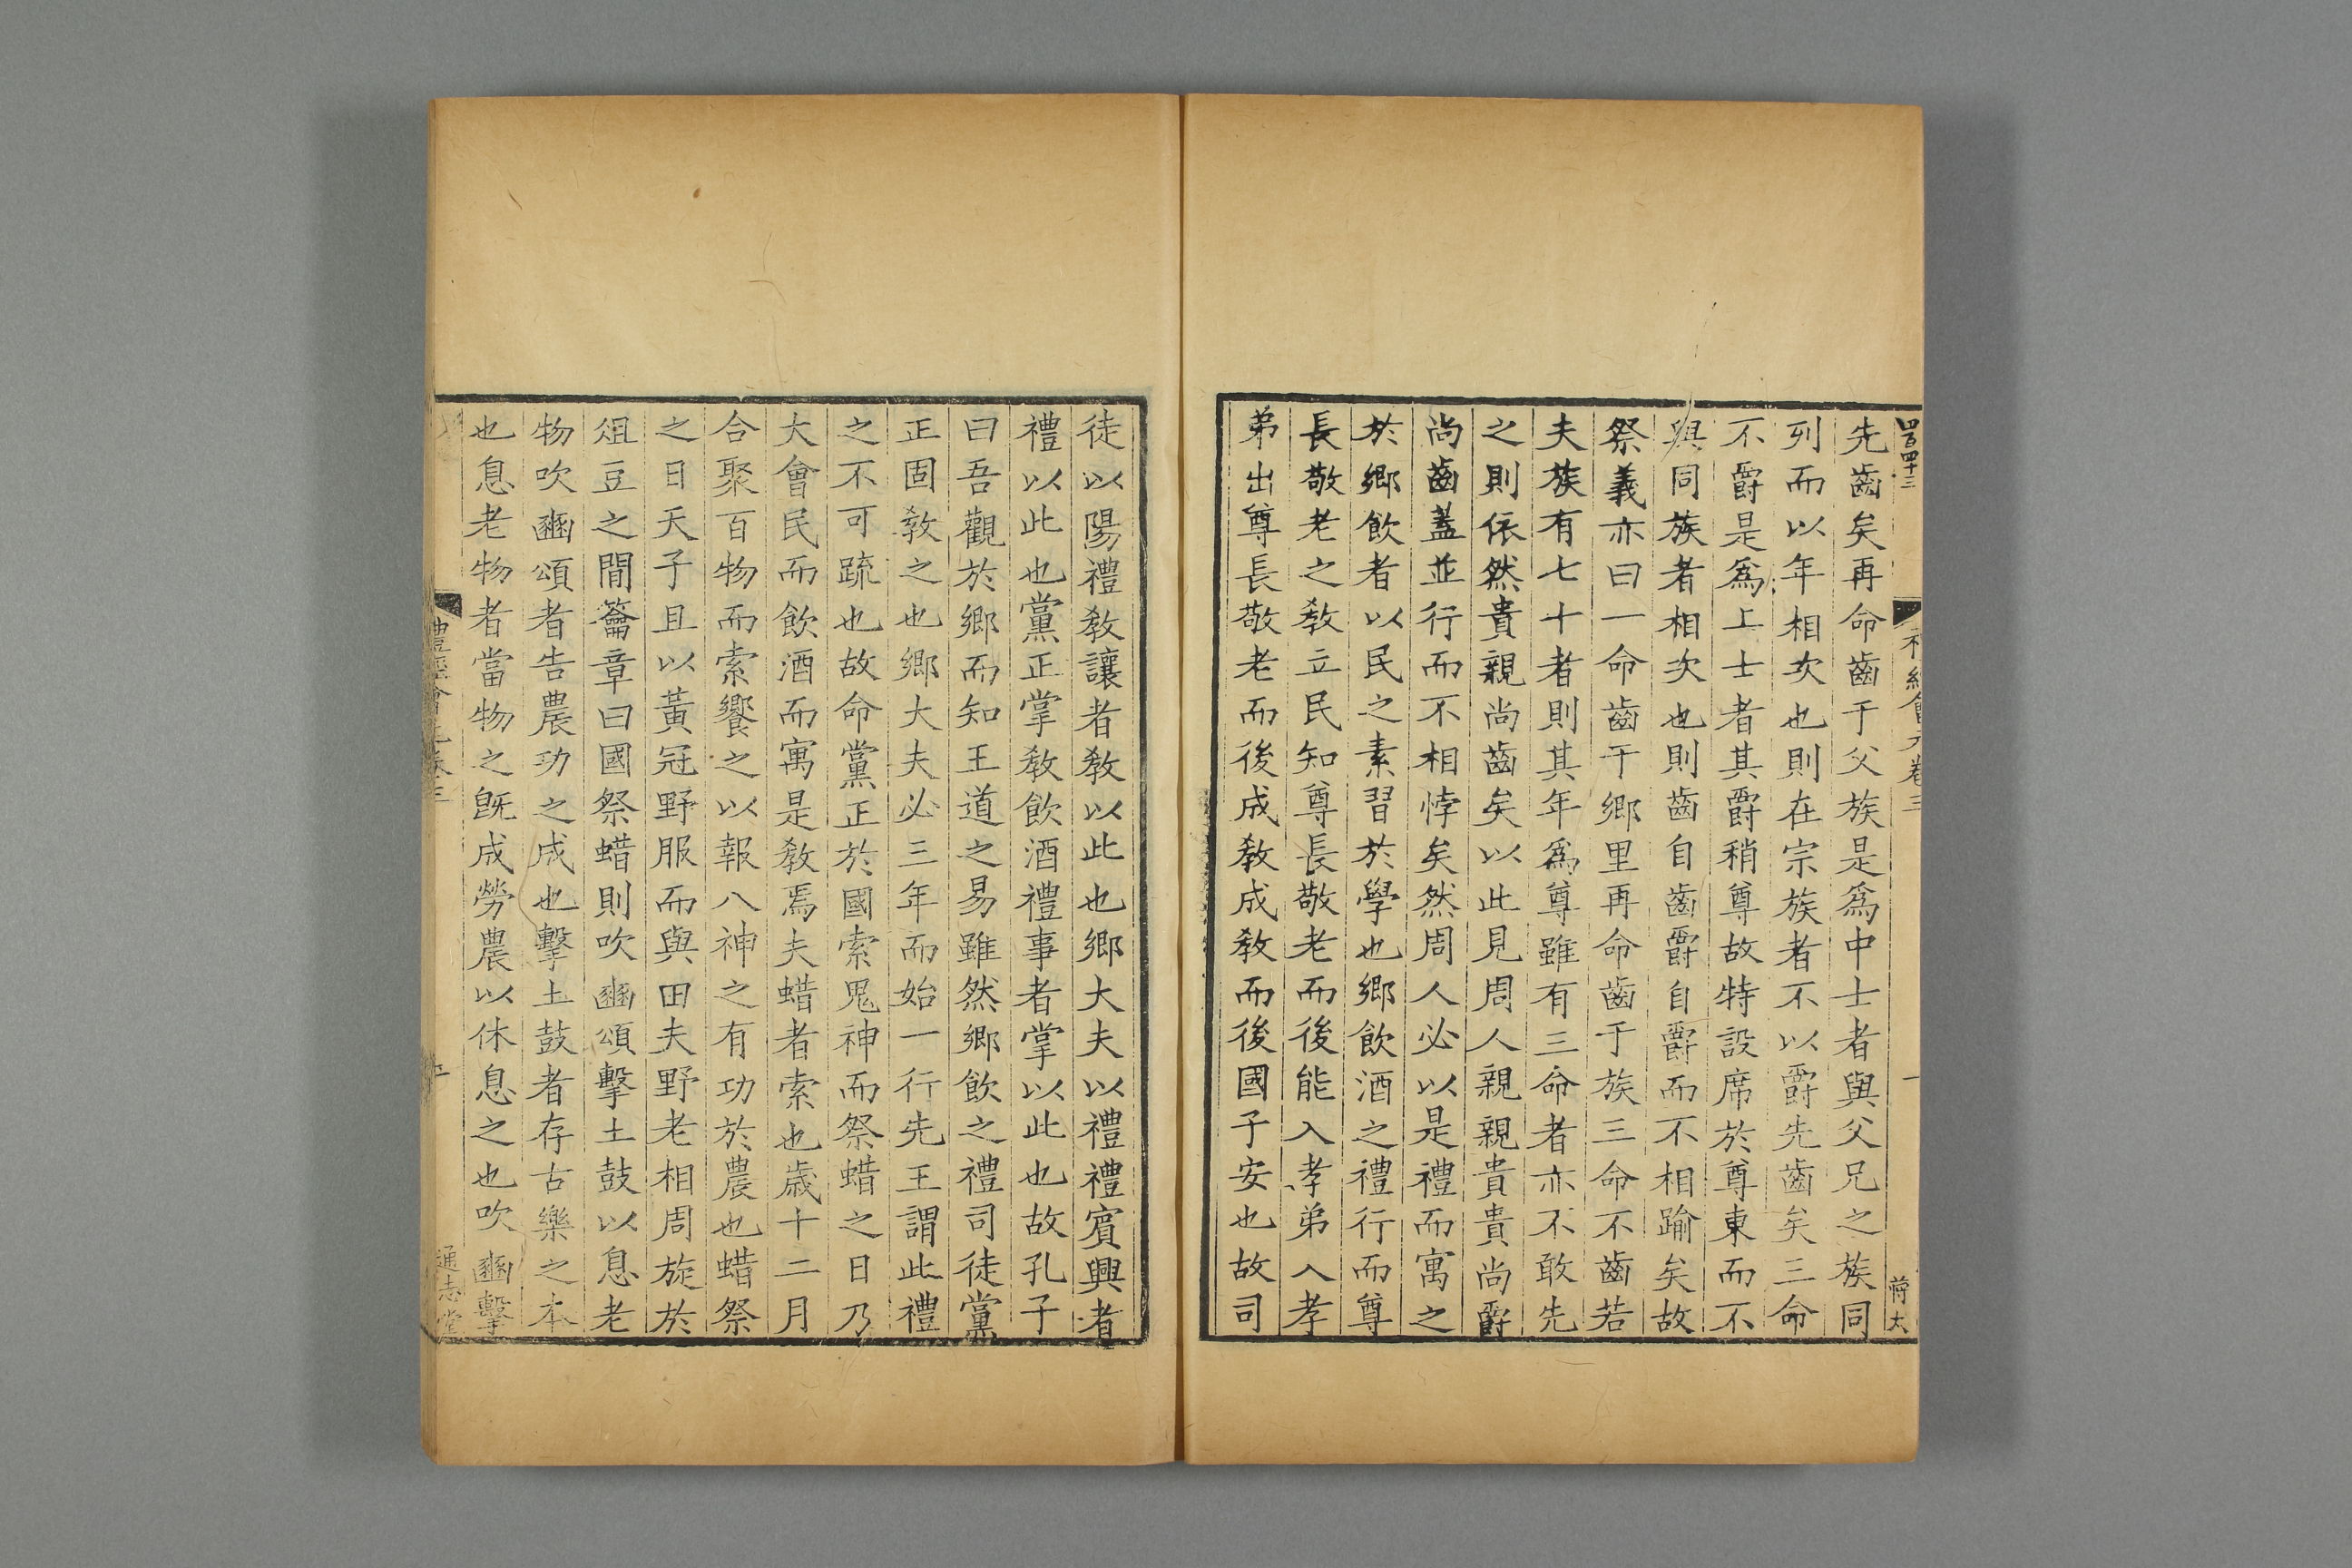 四百四十三
禮經會元卷三
蔣太
先齒矣再命齒于父族是爲中士者與父兄之族同
列而以年相次也則在宗族者不以爵先齒矣三命
不爵是爲上士者其爵稍尊故特設席於尊東而不
與同族者相次也則齒自齒爵自爵而不相踰矣故
祭義亦曰一命齒于鄉里再命齒于族三命不齒若
夫族有七十者則其年爲尊雖有三命者亦不敢先
之則依然貴親尚齒矣以此見周人親親貴貴尚爵
尚齒蓋並行而不相悖矣然周人必以是禮而寓之
於鄉飲者以民之素習於學也鄉飲酒之禮行而尊
長敬老之敎立民知尊長敬老而後能入孝弟入孝
弟出尊長敬老而後成敎成敎而後國子安也故司
徒以陽禮敎讓者敎以此也鄉大夫以禮禮賓興者
禮以此也黨正掌敎飲酒禮事者掌以此也故孔子
曰吾觀於鄉而知王道之易雖然鄉飲之禮司徒黨
正固敎之也鄉大夫必三年而始一行先王謂此禮
之不可疏也故命黨正於國索鬼神而祭蜡之日乃
大會民而飲酒而寓是敎焉夫蜡者索也歲十二月
合聚百物而索饗之以報八神之有功於農也蜡祭
之日天子且以黃冠野服而與田夫野老相周旋於
俎豆之間籥章曰國祭蜡則吹豳頌擊土鼓以息老
物吹豳頌者告農功之成也擊土鼓者存古樂之本
也息老物者當物之旣成勞農以休息之也吹豳擊
禮經會元卷三
通志堂